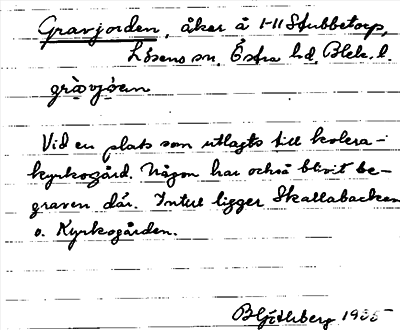 Gravjorden, åker å 1-11 Stubbetorp,
Lösens sn, Östra hd, Blek. l.
Vid en plats som utlagts till kolera-
kyrkogård. Någon har också blivit be-
graven där. Intill ligger Skallabacken
o. Kyrkogården.
1935